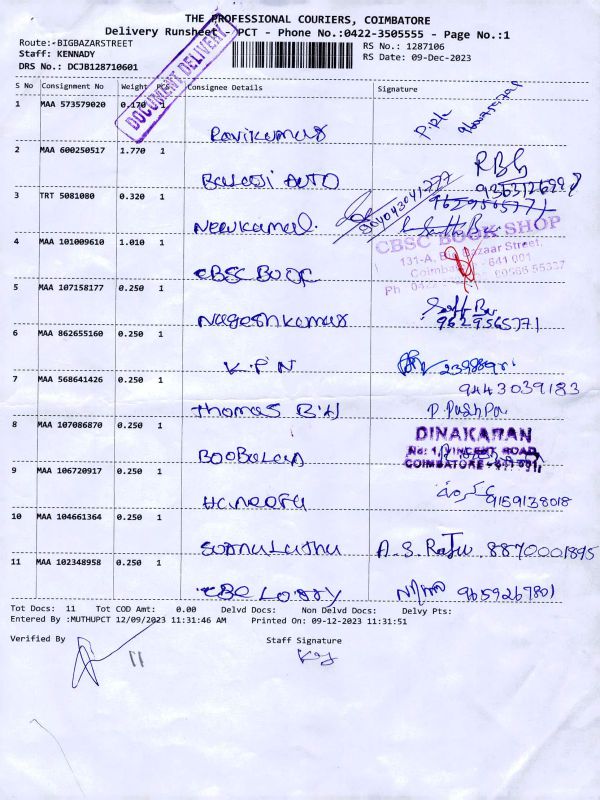 THE PROFESSIONAL COURIERS, COIMBATORE
Delivery Runsheet PCT - Phone No.:0422-3505555 - Page No.:1
Route:-BIGBAZARSTREET
RS No.: 1287106
Staff: KENNADY
RS Date: 09-Dec-2023
DRS No.: DCJB128710601
DOCUMENT DELIVERY
S No Consignment No Weight PCS Consignee Details Signature
1 MAA 573579020 0.170 1
Ravikumar
2 MAA 600250517 1.770 1
RBG
Balaji AUTO
3 TRT 5081080 0.320 1
9629565771
Neelkamal.
4 MAA 101009610 1.010 1
CBSC BOOK SHOP
131-A, Big Bazaar Street,
Coimbatore - 641 001
CBSC BOOK
5 MAA 107158177 0.250 1
Nageshkumar
9629565771
6 MAA 862655160 0.250 1
K.P.N
7 MAA 568641426 0.250 1
9443039183
Thomas B.H
P. Pushpa
8 MAA 107086870 0.250 1
DINAKARAN
No: 1, VINCENT ROAD,
COIMBATORE - 641 001.
BOOBALAN
9 MAA 106720917 0.250 1
9159138018
10 MAA 104661364 0.250 1
A.S. Raju 8870001895
11 MAA 102348958 0.250 1
LORRY 9659267801
Tot Docs: 11 Tot COD Amt: 0.00 Delvd Docs: Non Delvd Docs: Delvy Pts:
Entered By :MUTHUPCT 12/09/2023 11:31:46 AM Printed On: 09-12-2023 11:31:51
Verified By
Staff Signature